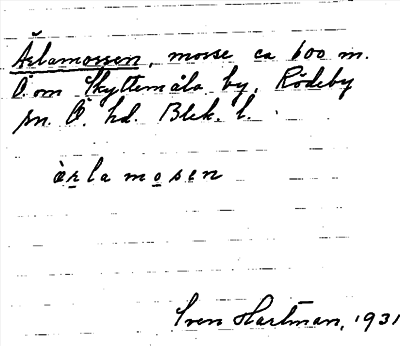 Ärlamossen, mosse ca 600 m.
Ö om Skyttemåla by, Rödeby
sn. Ö. hd. Blek. l.
ὰrlamosen
Sven Hartman, 1931